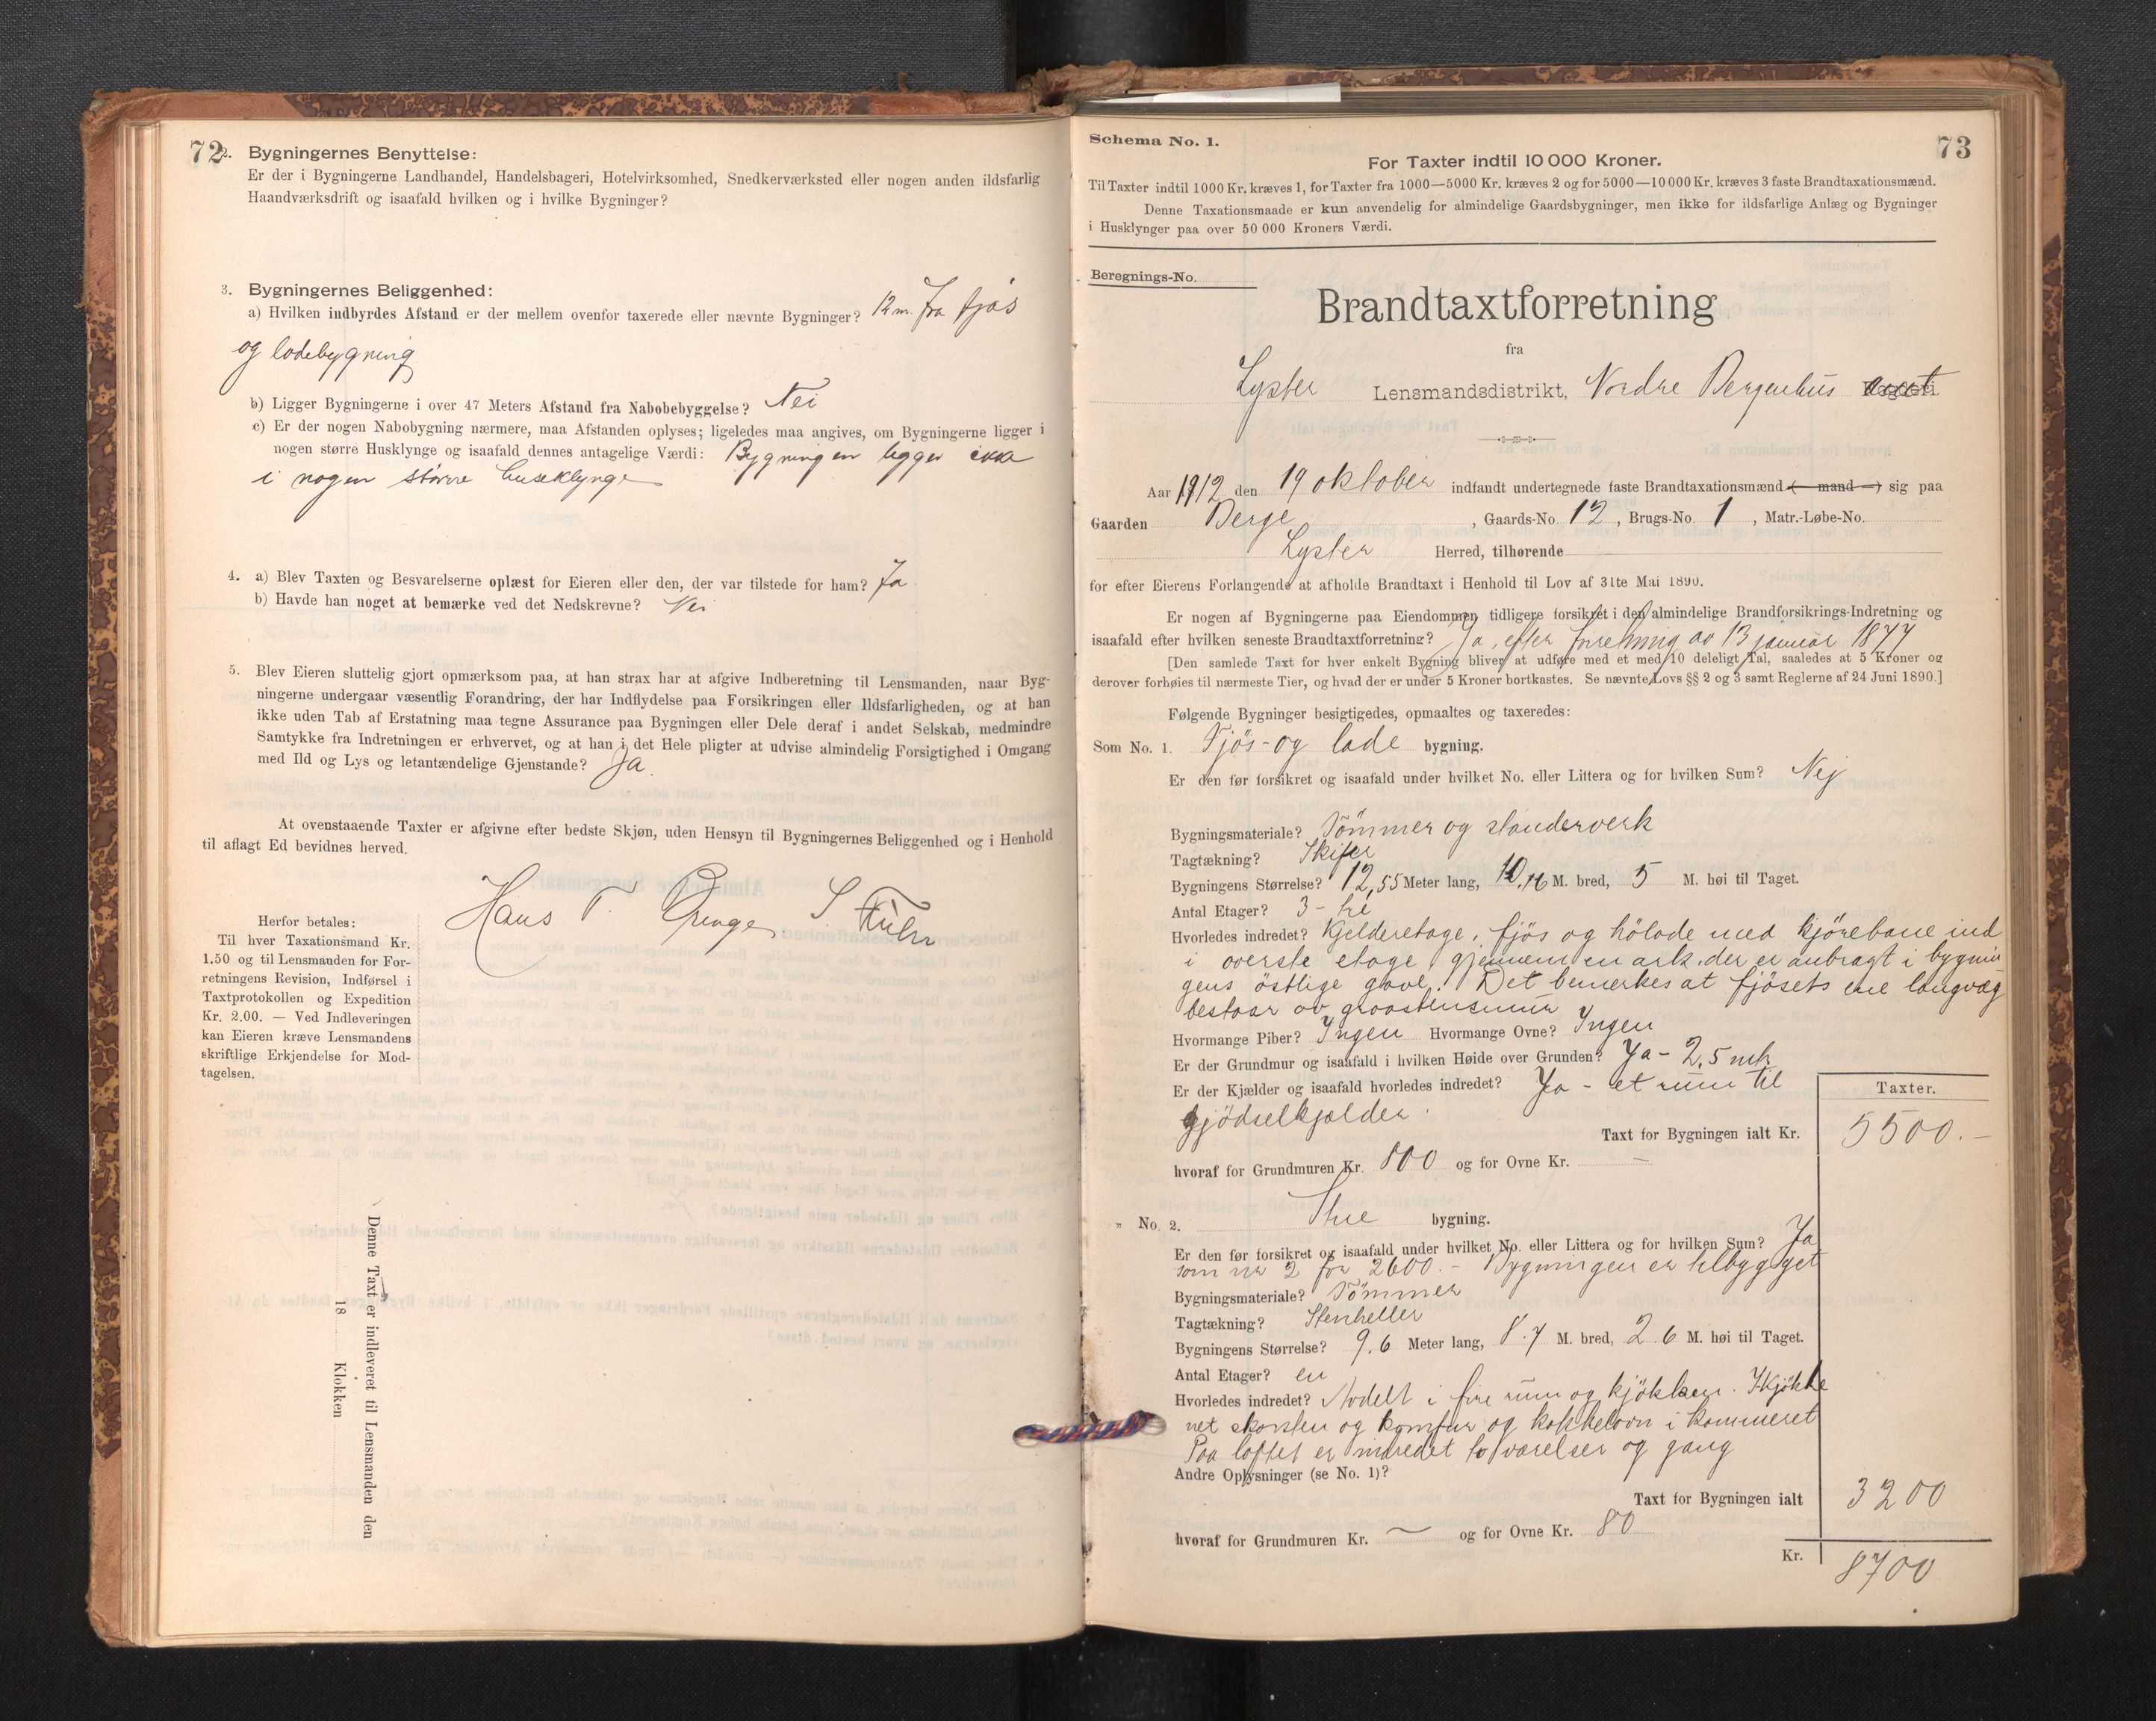 72
2. Bygningernes Benyttelse:
Er der i Bygningerne Landhandel, Handelsbageri, Hotelvirksomhed, Snedkerværksted eller nogen anden ildsfarlig
Haandværksdrift og isaafald hvilken og i hvilke Bygninger?
3. Bygningernes Beliggenhed:
a) Hvilken indbyrdes Afstand er der mellem ovenfor taxerede eller nævnte Bygninger? 12 m. fra fjøs
og ladebygning
b) Ligger Bygningerne i over 47 Meters Afstand fra Nabobebyggelse? Nei
c) Er der nogen Nabobygning nærmere, maa Afstanden oplyses; ligeledes maa angives, om Bygningerne ligger i
nogen større Husklynge og isaafald dennes antagelige Værdi: Bygningen ligger ikke
i nogen større huseklynge
4. a) Blev Taxten og Besvarelserne oplæst for Eieren eller den, der var tilstede for ham? Ja
b) Havde han noget at bemærke ved det Nedskrevne? Nei
5. Blev Eieren sluttelig gjort opmærksom paa, at han strax har at afgive Indberetning til Lensmanden, naar Byg-
ningerne undergaar væsentlig Forandring, der har Indflydelse paa Forsikringen eller Ildsfarligheden, og at han
ikke uden Tab af Erstatning maa tegne Assurance paa Bygningen eller Dele deraf i andet Selskab, medmindre
Samtykke fra Indretningen er erhvervet, og at han i det Hele pligter at udvise almindelig Forsigtighed i Omgang
med Ild og Lys og letantændelige Gjenstande? Ja.
At ovenstaaende Taxter er afgivne efter bedste Skjøn, uden Hensyn til Bygningernes Beliggenhed og i Henhold
til aflagt Ed bevidnes herved.
Hans T. S.
Herfor betales:
Til hver Taxationsmand Kr.
1.50 og til Lensmanden for For-
retningens Revision, Indførsel i
Taxtprotokollen og Expedition
Kr. 2.00. — Ved Indleveringen
kan Eieren kræve Lensmandens
skriftlige Erkjendelse for Mod-
tagelsen.
Denne Taxt er indleveret til Lensmanden den
18 Klokken
73
Schema No. 1.
For Taxter indtil 10 000 Kroner.
Til Taxter indtil 1000 Kr. kræves 1, for Taxter fra 1000—5000 Kr. kræves 2 og for 5000—10 000 Kr. kræves 3 faste Brandtaxationsmænd.
Denne Taxationsmaade er kun anvendelig for almindelige Gaardsbygninger, men ikke for ildsfarlige Anlæg og Bygninger
i Husklynger paa over 50 000 Kroners Værdi.
Beregnings-No.
Brandtaxtforretning
fra
Lyster Lensmandsdistrikt, Nordre Bergenhus amt Fogderi
Aar 1912 den 19 oktober indfandt undertegnede faste Brandtaxationsmænd (— mand —) sig paa
Gaarden Berge, Gaards-No. 12, Brugs-No. 1, Matr.-Løbe-No.
Lyster Herred, tilhørende
for efter Eierens Forlangende at afholde Brandtaxt i Henhold til Lov af 31te Mai 1890.
Er nogen af Bygningerne paa Eiendommen tidligere forsikret i den almindelige Brandforsikrings-Indretning og
isaafald efter hvilken seneste Brandtaxtforretning? Ja, efter forretning av 13 januar 1877
[Den samlede Taxt for hver enkelt Bygning bliver at udføre med et med 10 deleligt Tal, saaledes at 5 Kroner og
derover forhøies til nærmeste Tier, og hvad der er under 5 Kroner bortkastes. Se nævnte Lovs §§ 2 og 3 samt Reglerne af 24 Juni 1890.]
Følgende Bygninger besigtigedes, opmaaltes og taxeredes:
Som No. 1. Fjøs- og lade bygning.
Er den før forsikret og isaafald under hvilket No. eller Littera og for hvilken Sum? Nej
Bygningsmateriale? Tømmer og standerverk
Tagtækning? Skifer
Bygningens Størrelse? 12,55 Meter lang, 10.16 M. bred, 5 M. høi til Taget.
Antal Etager? 3 - tre
Hvorledes indredet? Kjelderetage, fjøs og hølade med kjørebane ind
i øverste etage gjennem en ark, der er anbragt i bygnin
gens østlige gavl. Det bemerkes at fjøsets ene langvæg
bestaar av graastensmur
Hvormange Piber? Ingen Hvormange Ovne? Ingen
Er der Grundmur og isaafald i hvilken Høide over Grunden? Ja - 2,5 mtr
Er der Kjælder og isaafald hvorledes indredet? Ja - et rum til
gjødselkjælder.
Taxter.
Taxt for Bygningen ialt Kr. 5500.-
hvoraf for Grundmuren Kr. 800 og for Ovne Kr. —
" No. 2. Stue bygning.
Er den før forsikret og isaafald under hvilket No. eller Littera og for hvilken Sum? Ja
som nr 2 for 2600.- Bygningen er tilbygget
Bygningsmateriale? Tømmer
Tagtækning? Stenheller
Bygningens Størrelse? 9.6 Meter lang, 8.7 M. bred, 2.6 M. høi til Taget.
Antal Etager? en
Hvorledes indredet? Avdelt i fire rum og kjøkken. I kjøkke
net skorsten og komfur og kakkelovn i kammeret
Paa loftet er indredet to værelser og gang
Andre Oplysninger (se No. 1)?
Taxt for Bygningen ialt 3200
hvoraf for Grundmuren Kr. — og for Ovne Kr. 80
Kr. 8700